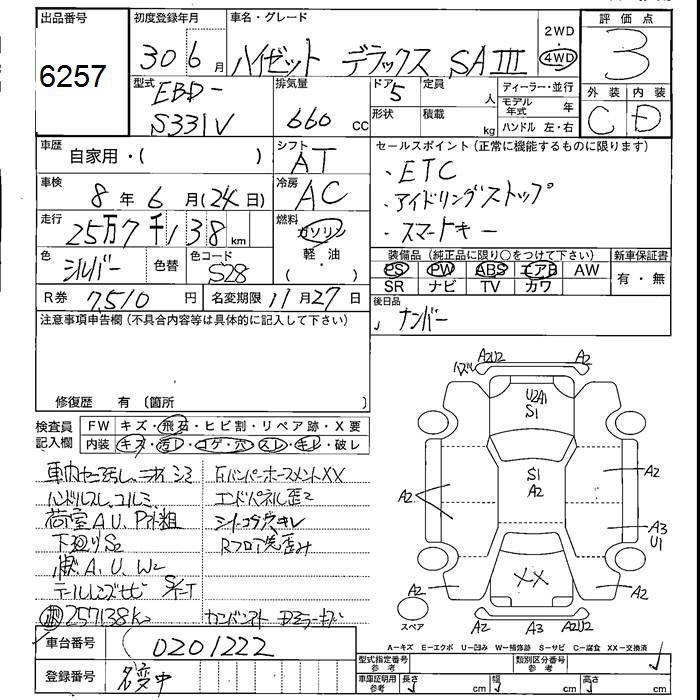 出品番号
6257
初度登録年月
30 6月
車名・グレード
ハイゼット デラックス SAIII
2WD
4WD
評価点
3
外装 内装
C D
型式
EBD-
S331V
排気量
660 cc
ドア
5
定員
人
形状
積載
kg
ディーラー・並行
モデル年式 年
ハンドル 左・右
車歴
自家用・( )
シフト
AT
セールスポイント(正常に機能するものに限ります)
・ETC
・アイドリングストップ
・スマートキー
車検
8年6月(24日)
冷房
AC
走行
25万7千138km
燃料
ガソリン
軽・油
( )
色
シルバー
色替
色コード
S28
装備品(純正品に限り○をつけて下さい)
PS PW ABS エアB AW
SR ナビ TV カワ
新車保証書
有・無
R券 7,510円
名変期限 11月27日
後日品
ナンバー
注意事項申告欄(不具合内容等は具体的に記入して下さい)
修復歴 有〔箇所 〕
検査員
記入欄
FW キズ・飛石・ヒビ割・リペア跡・X要
内装 キズ・汚レ・コゲ・穴・スレ・キレ・破レ
ハンドルスレ
荷室A,U,
下廻りS2
A,U,W2
テールレンズヒビ
257138k
エンドパネル歪
Rフロア洗歪み
A2U2
A2
U2A1
S1
S1
A2
A2
A2
A3
U1
XX
A2
A2
スペア
A2
A3
A2U2
A-キズ E-エクボ U-凹み W-補修跡 S-サビ C-腐食 XX-交換済
車台番号
0201222
登録番号
名変中
型式指定番号
参考
類別区分番号
参考
車庫証明用
参考
長さ cm
幅 cm
高さ cm